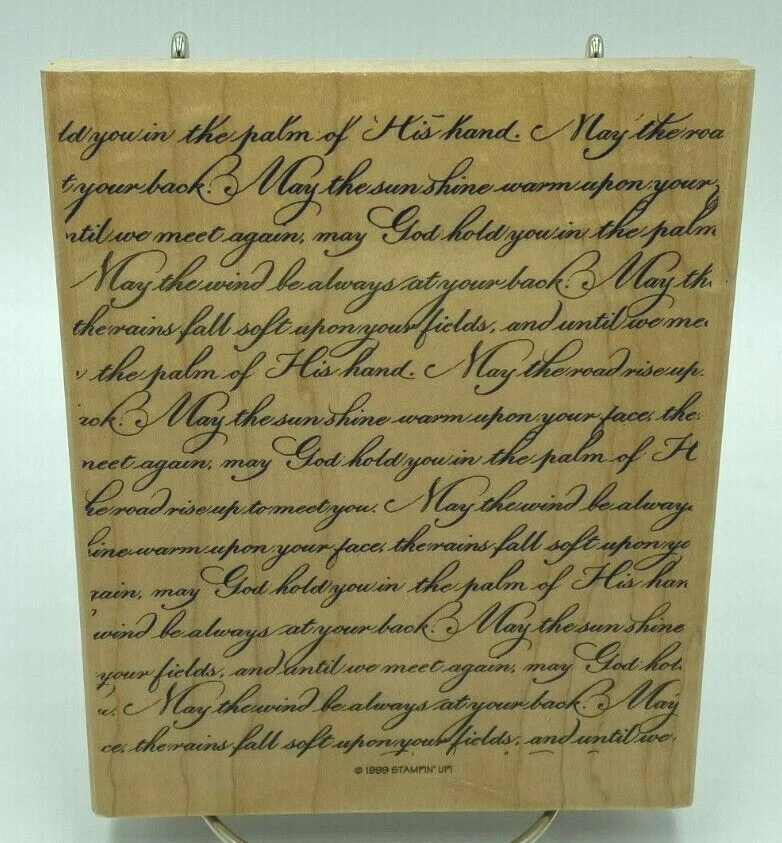 ld you in the palm of His hand. May the roa
t your back. May the sun shine warm upon your
ntil we meet again, may God hold you in the palm
May the wind be always at your back. May th
the rains fall soft upon your fields, and until we me
the palm of His hand. May the road rise up
ack. May the sun shine warm upon your face, the
meet again, may God hold you in the palm of H
he road rise up to meet you. May the wind be alway
hine warm upon your face, the rains fall soft upon yo
gain, may God hold you in the palm of His han
wind be always at your back. May the sun shine
your fields, and until we meet again, may God hol
u. May the wind be always at your back. May
ce, the rains fall soft upon your fields, and until we
© 1999 STAMPIN' UP!